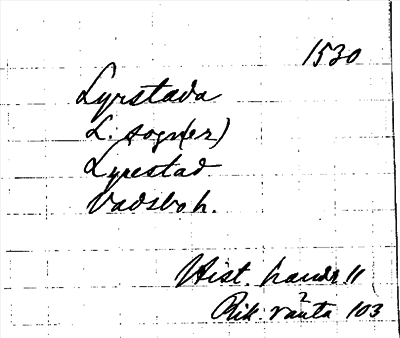 1530
Lyrstada
L. sogn(er)
Lyrestad
Vadsbo h.
Hist. handl 11
Rik. ränta 103